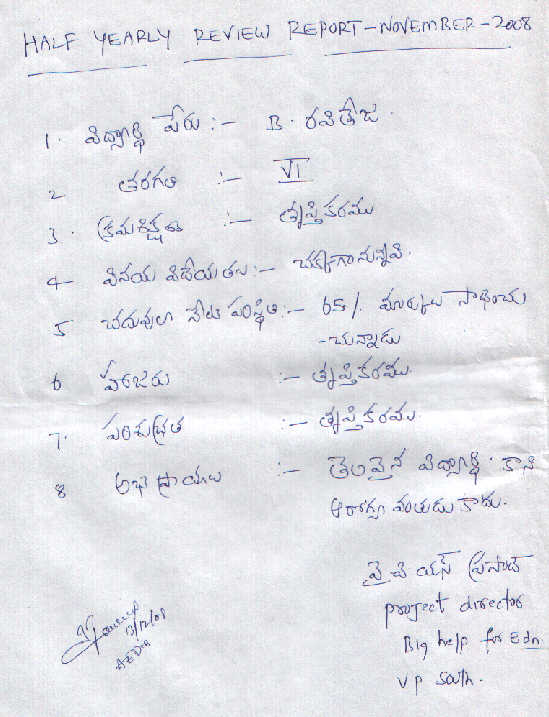 HALF YEARLY REVIEW REPORT - NOVEMBER - 2008
1. విద్యార్థి పేరు :- B. రవితేజ.
2 తరగతి :- VI
3. క్రమశిక్షణ :- తృప్తికరము
4 వినయ విదేయతలు :- చక్కగానున్నవి.
5 చదువులో నేటి పరిస్థితి :- 65%. మార్కులు సాధించు
- చున్నాడు
6 హాజరు :- తృప్తికరము
7. పరిశుభ్రత :- తృప్తికరము.
8 అభిప్రాయము :- తెలివైన విద్యార్థి. కాని
ఆరోగ్యవంతుడు కాదు.
వై వి యస్ ప్రసాద్
project director
Big help for Edn
V P South.